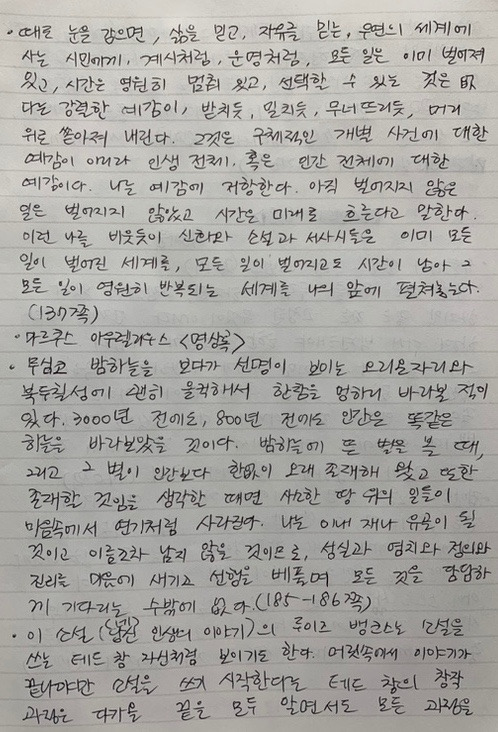 • 때로 눈을 감으면, 삶을 믿고, 자유를 믿는, 우연의 세계에
사는 시민에게, 계시처럼, 운명처럼, 모든 일은 이미 벌어져
있고, 시간은 영원히 멈춰 있고, 선택할 수 있는 것은 없
다는 강력한 예감이, 받치듯, 밀치듯, 무너뜨리듯, 머리
위로 쏟아져 내린다. 그것은 구체적인 개별 사건에 대한
예감이 아니라 인생 전체, 혹은 인간 전체에 대한
예감이다. 나는 예감에 저항한다. 아직 벌어지지 않은
일은 벌어지지 않았고 시간은 미래로 흐른다고 말한다.
이런 나를 비웃듯이 신화와 소설과 서사시들은 이미 모든
일이 벌어진 세계를, 모든 일이 벌어지고도 시간이 남아 그
모든 일이 영원히 반복되는 세계를 나의 앞에 펼쳐놓는다.
(137쪽)
• 마르쿠스 아우렐리우스 <명상록>
• 무심코 밤하늘을 보다가 선명이 보이는 오리온자리와
북두칠성에 괜히 울컥해서 한참을 멍하니 바라본 적이
있다. 3000년 전에도, 800년 전에도 인간은 똑같은
하늘을 바라보았을 것이다. 밤하늘에 뜬 별을 볼 때,
그리고 그 별이 인간보다 한없이 오래 존재해 왔고 또한
존재할 것임을 생각할 때면 사소한 땅 위의 일들이
마음속에서 연기처럼 사라진다. 나는 이내 재나 유골이 될
것이고 이름조차 남지 않을 것이므로, 성실과 염치와 정의와
진리를 마음에 새기고 선행을 베풀며 모든 것을 담담하
게 기다리는 수밖에 없다. (185-186쪽)
• 이 소설(<네 인생의 이야기>)의 루이즈 뱅크스는 소설을
쓰는 테드 창 자신처럼 보이기도 한다. 머릿속에서 이야기가
끝나야만 소설을 쓰기 시작한다는 테드 창의 창작
과정은 다가올 끝을 모두 알면서도 모든 과정을